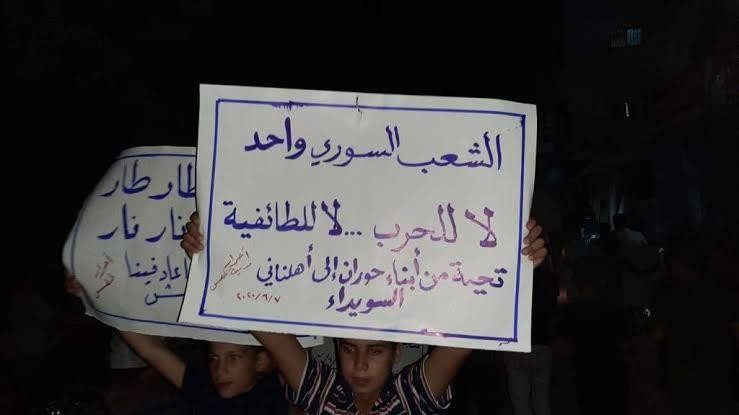 الشعب السوري واحد
لا للحرب ... لا للطائفية
تحية من أبناء حوران إلى أهلنا في
السويداء
٢٠٢٠/٦/٧
طار طار
نار نار
عاد فينا